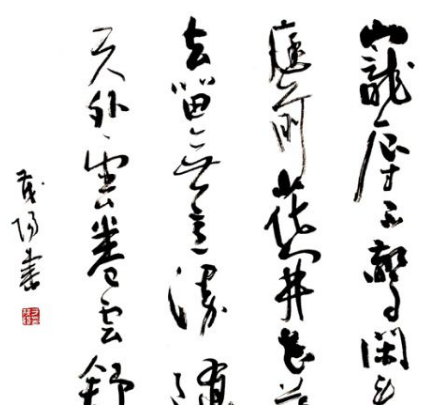 寵辱不驚閑看
庭前花開花落
去留無意漫隨
天外雲卷雲舒
書